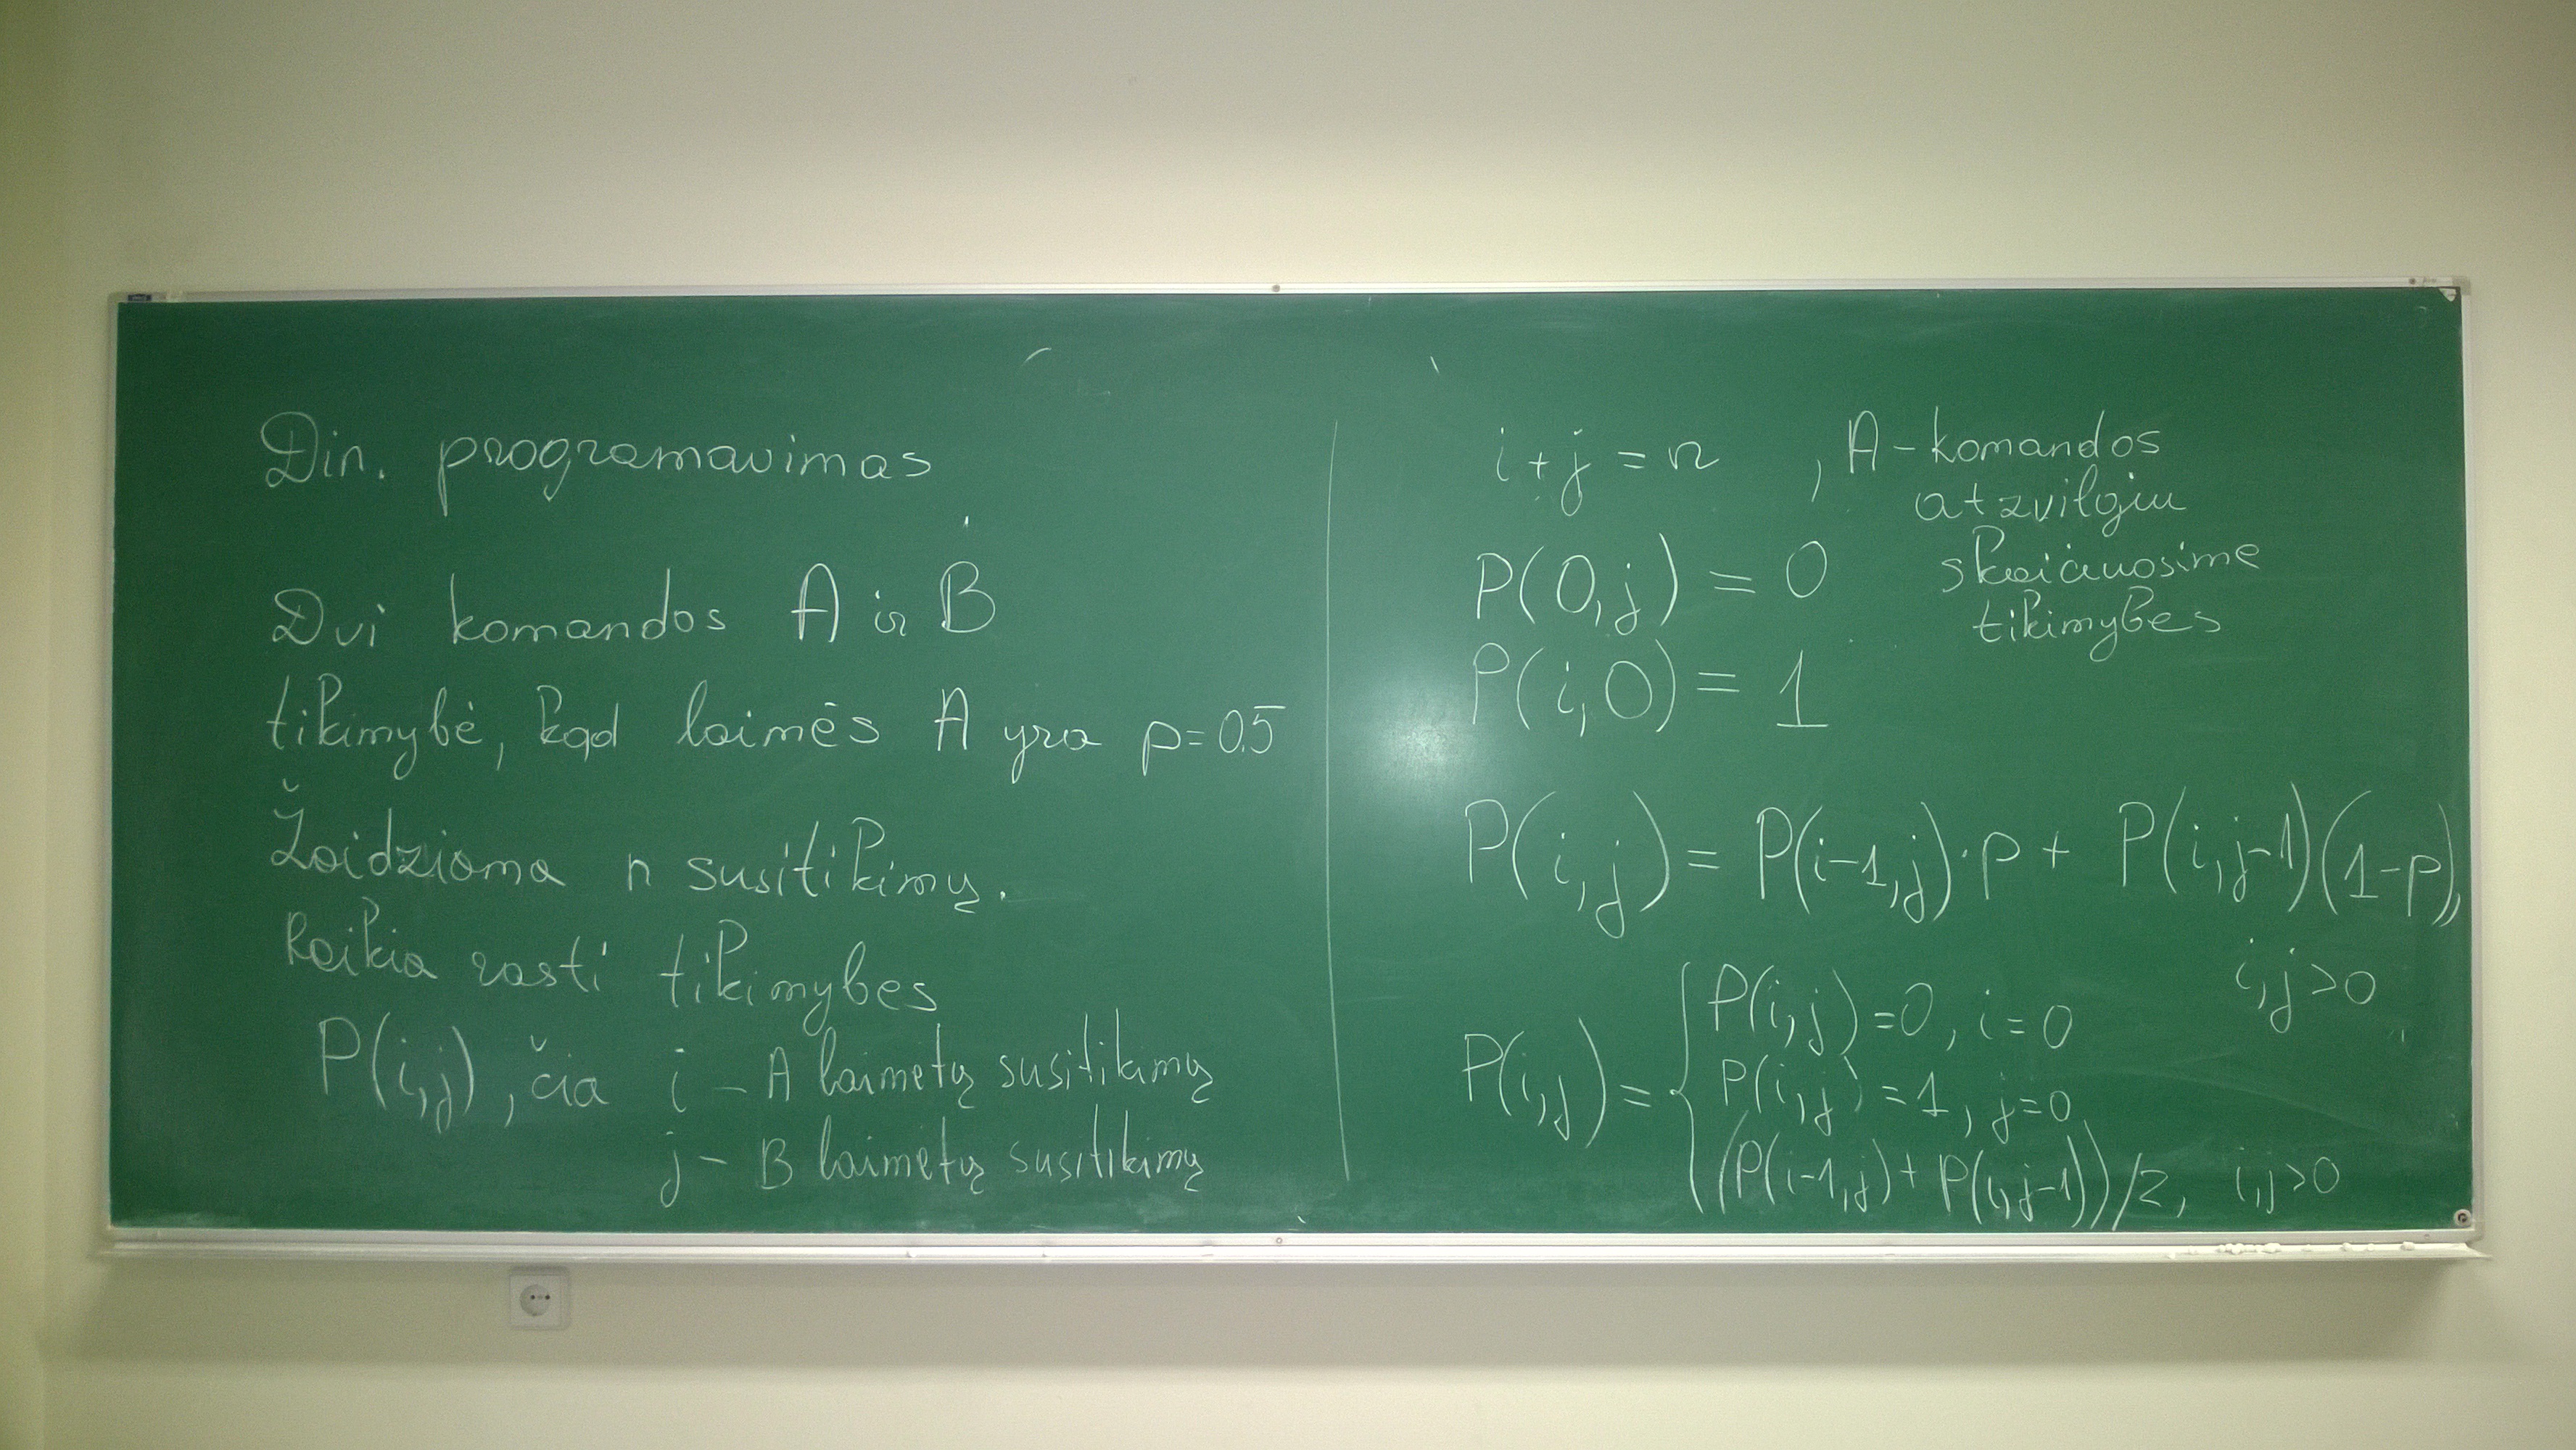 Din. programavimas
Dvi komandos A ir B
tikimybė, kad laimės A yra p=0.5
Žaidžiama n susitikimų.
Reikia rasti tikimybes
P(i,j), čia i – A laimėtų susitikimų
j – B laimėtų susitikimų
i+j=n , A-komandos
atžvilgiu
skaičiuosime
tikimybes
P(0,j) = 0
P(i,0) = 1
P(i,j) = P(i-1,j)·p + P(i,j-1)(1-p),
i,j>0
P(i,j) = { P(i,j)=0, i=0
P(i,j)=1, j=0
(P(i-1,j)+P(i,j-1))/2, i,j>0